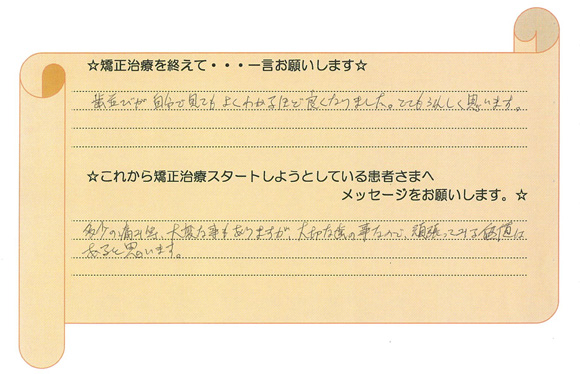 ☆矯正治療を終えて・・・一言お願いします☆
歯並びが自分で見てもよくわかるほど良くなりました。とてもうれしく思います。
☆これから矯正治療スタートしようとしている患者さまへ
メッセージをお願いします。☆
多少の痛みや、大変な事もありますが、大切な歯の事なので、頑張ってみる価値は
あると思います。